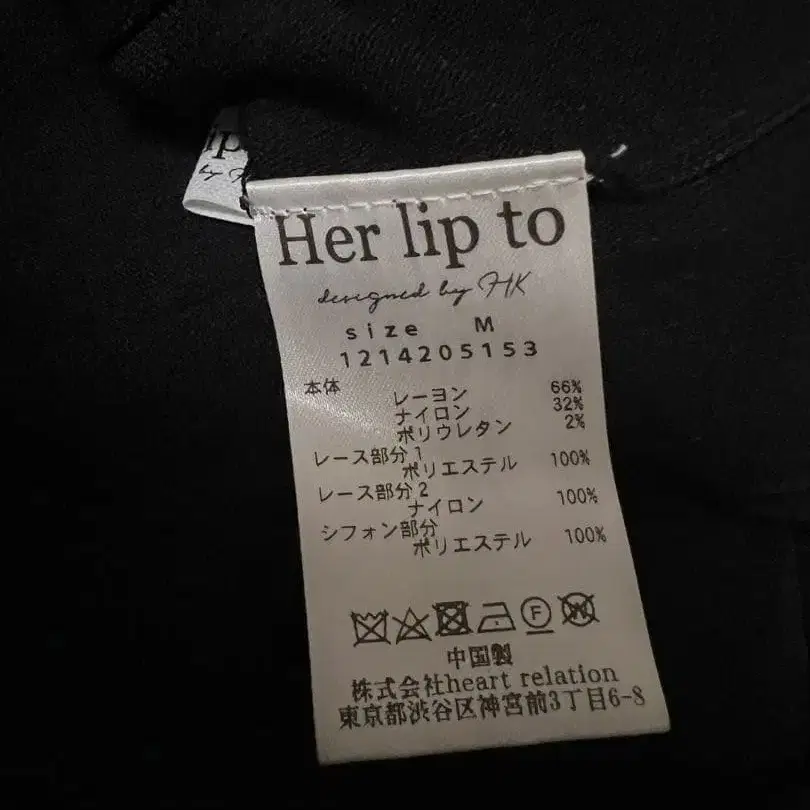 ip
by
Her lip to
designed by HK
size M
1214205153
本体
レーヨン 66%
ナイロン 32%
ポリウレタン 2%
レース部分1
ポリエステル 100%
レース部分2
ナイロン 100%
シフォン部分
ポリエステル 100%
F W
中国製
株式会社heart relation
東京都渋谷区神宮前3丁目6-8